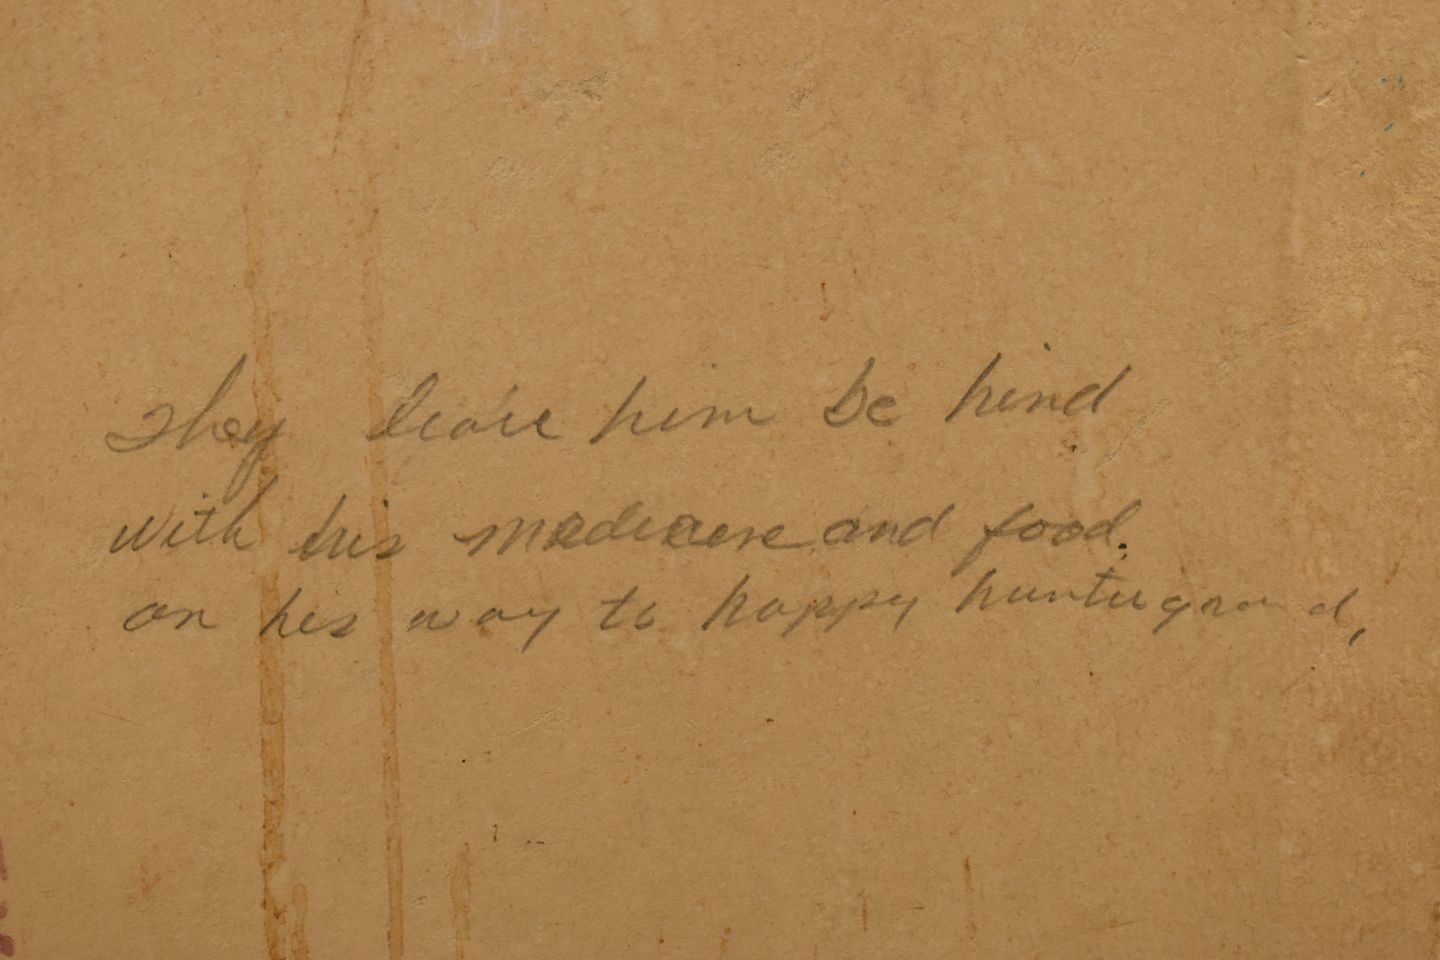 They leave him be hind
with his medicene and food.
on his way to happy hunter ground,